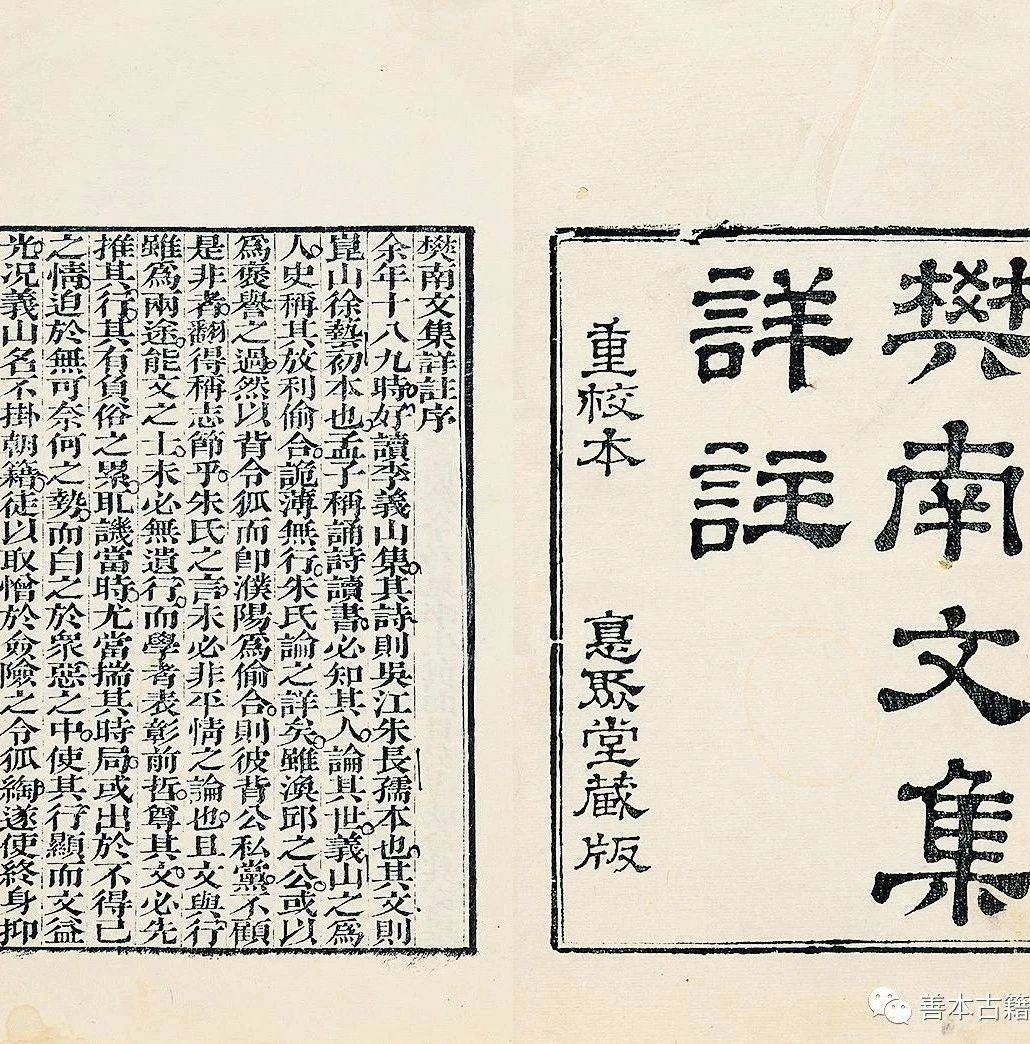 樊南文集
詳註
重校本
悳聚堂藏版
樊南文集詳註序
余年十八九時好讀李義山集其詩則吳江朱長孺本也其文則
崑山徐藝初本也孟子稱誦詩讀書必知其人論其世義山之為
人史稱其放利偷合詭薄無行朱氏論之詳矣雖渙邱之公或以
為褒譽之過然以背令狐而卽濮陽為偷合則彼背公私黨不顧
是非者翻得稱志節乎朱氏之言未必非平情之論也且文與行
雖為兩途能文之士未必無遺行而學者表彰前哲尊其文必先
推其行其有負俗之累貽譏當時尤當揣其時局或出於不得已
之情迫於無可奈何之勢而白之於衆惡之中使其行顯而文益
光况義山名不掛朝籍徒以取憎於僉險之令狐綯遂使終身抑
善本古籍